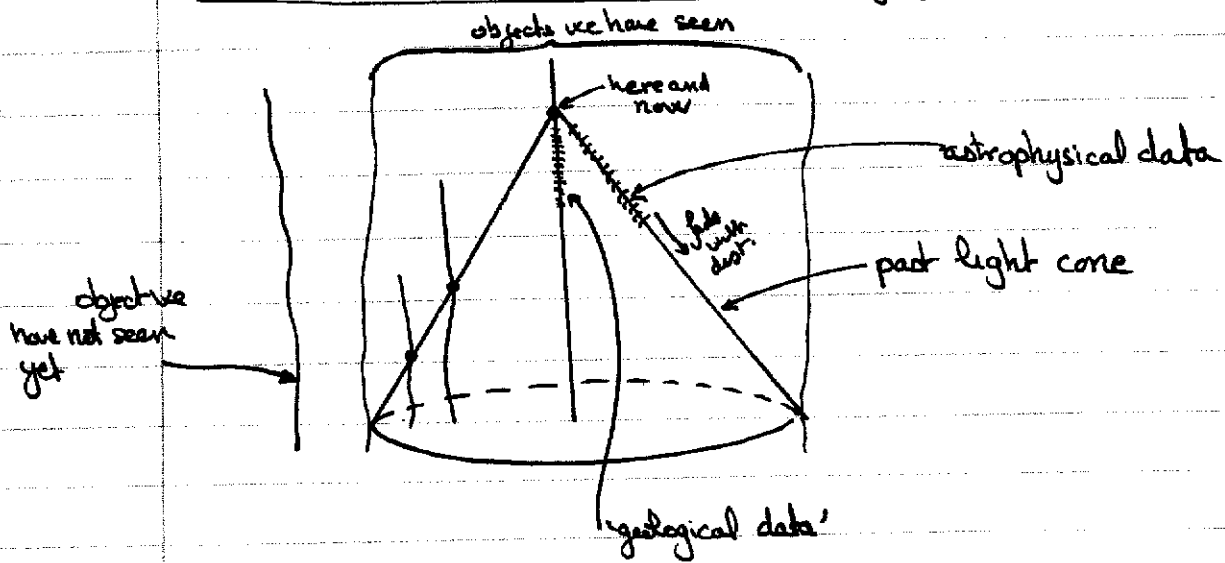 objects we have seen
here and
now
astrophysical data
fade
with
dist.
past light cone
objectwe
have not seen
yet
'geological data'